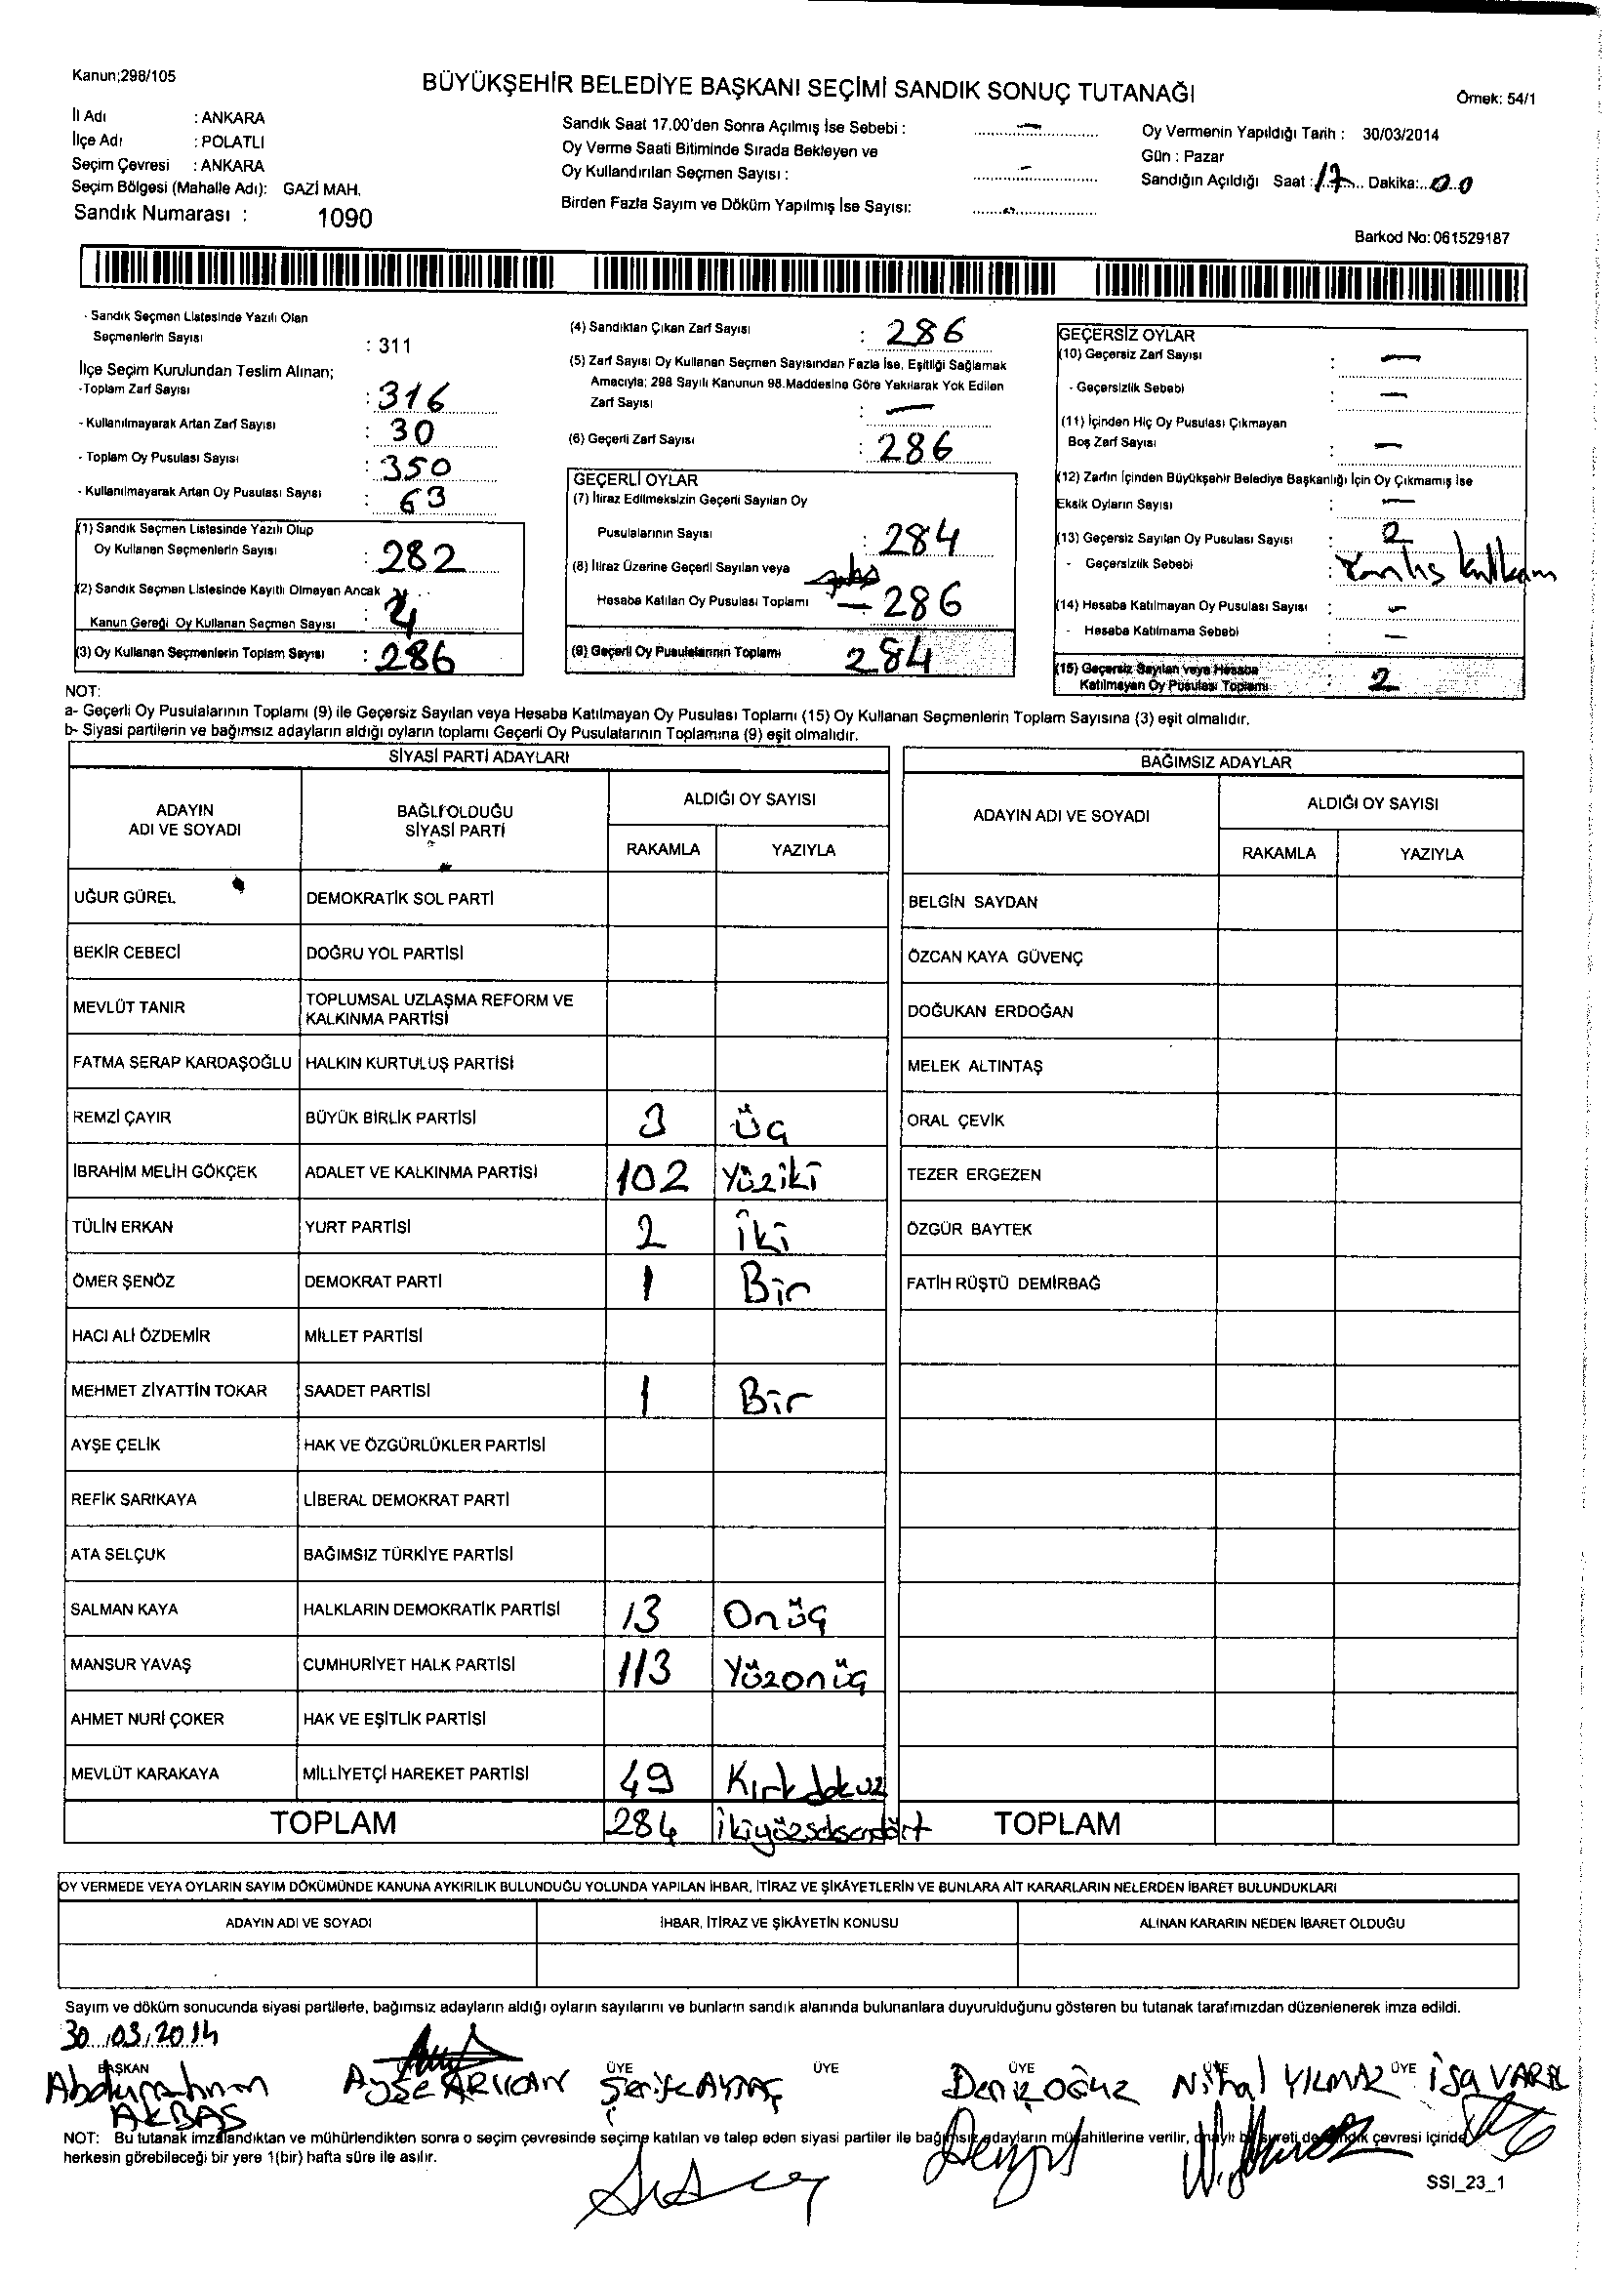 Kanun;298/105
BÜYÜKŞEHİR BELEDİYE BAŞKANI SEÇİMİ SANDIK SONUÇ TUTANAĞI
Örnek: 54/1
İl Adı : ANKARA
İlçe Adı : POLATLI
Seçim Çevresi : ANKARA
Seçim Bölgesi (Mahalle Adı): GAZİ MAH.
Sandık Numarası : 1090
Sandık Saat 17.00'den Sonra Açılmış İse Sebebi : –
Oy Verme Saati Bitiminde Sırada Bekleyen ve
Oy Kullandırılan Seçmen Sayısı : –
Birden Fazla Sayım ve Döküm Yapılmış İse Sayısı:
Oy Vermenin Yapıldığı Tarih : 30/03/2014
Gün : Pazar
Sandığın Açıldığı Saat : 17 Dakika: 00
Barkod No: 061529187
- Sandık Seçmen Listesinde Yazılı Olan
Seçmenlerin Sayısı : 311
İlçe Seçim Kurulundan Teslim Alınan;
-Toplam Zarf Sayısı : 316
- Kullanılmayarak Artan Zarf Sayısı : 30
- Toplam Oy Pusulası Sayısı : 350
- Kullanılmayarak Artan Oy Pusulası Sayısı : 63
(1) Sandık Seçmen Listesinde Yazılı Olup
Oy Kullanan Seçmenlerin Sayısı : 282
(2) Sandık Seçmen Listesinde Kayıtlı Olmayan Ancak
Kanun Gereği Oy Kullanan Seçmen Sayısı : 4
(3) Oy Kullanan Seçmenlerin Toplam Sayısı : 286
(4) Sandıktan Çıkan Zarf Sayısı : 286
(5) Zarf Sayısı Oy Kullanan Seçmen Sayısından Fazla İse, Eşitliği Sağlamak
Amacıyla; 298 Sayılı Kanunun 98.Maddesine Göre Yakılarak Yok Edilen
Zarf Sayısı : –
(6) Geçerli Zarf Sayısı : 286
GEÇERLİ OYLAR
(7) İtiraz Edilmeksizin Geçerli Sayılan Oy
Pusulalarının Sayısı : 284
(8) İtiraz Üzerine Geçerli Sayılan veya
Hesaba Katılan Oy Pusulası Toplamı – 286
(9) Geçerli Oy Pusulalarının Toplamı 284
GEÇERSİZ OYLAR
(10) Geçersiz Zarf Sayısı : –
- Geçersizlik Sebebi : –
(11) İçinden Hiç Oy Pusulası Çıkmayan
Boş Zarf Sayısı : –
(12) Zarfın İçinden Büyükşehir Belediye Başkanlığı İçin Oy Çıkmamış İse
Eksik Oyların Sayısı : –
(13) Geçersiz Sayılan Oy Pusulası Sayısı : 2
- Geçersizlik Sebebi :
(14) Hesaba Katılmayan Oy Pusulası Sayısı : –
- Hesaba Katılmama Sebebi : –
(15) Geçersiz Sayılan veya Hesaba
Katılmayan Oy Pusulası Toplamı : 2
NOT:
a- Geçerli Oy Pusulalarının Toplamı (9) ile Geçersiz Sayılan veya Hesaba Katılmayan Oy Pusulası Toplamı (15) Oy Kullanan Seçmenlerin Toplam Sayısına (3) eşit olmalıdır.
b- Siyasi partilerin ve bağımsız adayların aldığı oyların toplamı Geçerli Oy Pusulalarının Toplamına (9) eşit olmalıdır.
SİYASİ PARTİ ADAYLARI
ADAYIN ADI VE SOYADI
BAĞLI OLDUĞU SİYASİ PARTİ
ALDIĞI OY SAYISI
RAKAMLA YAZIYLA
UĞUR GÜREL DEMOKRATİK SOL PARTİ
BEKİR CEBECİ DOĞRU YOL PARTİSİ
MEVLÜT TANIR TOPLUMSAL UZLAŞMA REFORM VE
KALKINMA PARTİSİ
FATMA SERAP KARDAŞOĞLU HALKIN KURTULUŞ PARTİSİ
REMZİ ÇAYIR BÜYÜK BİRLİK PARTİSİ 3 üç
İBRAHİM MELİH GÖKÇEK ADALET VE KALKINMA PARTİSİ 102 Yüziki
TÜLİN ERKAN YURT PARTİSİ 2 iki
ÖMER ŞENÖZ DEMOKRAT PARTİ 1 Bir
HACI ALİ ÖZDEMİR MİLLET PARTİSİ
MEHMET ZİYATTİN TOKAR SAADET PARTİSİ 1 Bir
AYŞE ÇELİK HAK VE ÖZGÜRLÜKLER PARTİSİ
REFİK SARIKAYA LİBERAL DEMOKRAT PARTİ
ATA SELÇUK BAĞIMSIZ TÜRKİYE PARTİSİ
SALMAN KAYA HALKLARIN DEMOKRATİK PARTİSİ 13 Onüç
MANSUR YAVAŞ CUMHURİYET HALK PARTİSİ 113 Yüzonüç
AHMET NURİ ÇOKER HAK VE EŞİTLİK PARTİSİ
MEVLÜT KARAKAYA MİLLİYETÇİ HAREKET PARTİSİ 49 Kırkdokuz
TOPLAM 284 ikiyüzseksendört
BAĞIMSIZ ADAYLAR
ADAYIN ADI VE SOYADI
ALDIĞI OY SAYISI
RAKAMLA YAZIYLA
BELGİN SAYDAN
ÖZCAN KAYA GÜVENÇ
DOĞUKAN ERDOĞAN
MELEK ALTINTAŞ
ORAL ÇEVİK
TEZER ERGEZEN
ÖZGÜR BAYTEK
FATİH RÜŞTÜ DEMİRBAĞ
TOPLAM
OY VERMEDE VEYA OYLARIN SAYIM DÖKÜMÜNDE KANUNA AYKIRILIK BULUNDUĞU YOLUNDA YAPILAN İHBAR, İTİRAZ VE ŞİKÂYETLERİN VE BUNLARA AİT KARARLARIN NELERDEN İBARET BULUNDUKLARI
ADAYIN ADI VE SOYADI İHBAR, İTİRAZ VE ŞİKÂYETİN KONUSU ALINAN KARARIN NEDEN İBARET OLDUĞU
Sayım ve döküm sonucunda siyasi partilerle, bağımsız adayların aldığı oyların sayılarını ve bunların sandık alanında bulunanlara duyurulduğunu gösteren bu tutanak tarafımızdan düzenlenerek imza edildi.
30.03.2014
BAŞKAN ÜYE ÜYE ÜYE ÜYE ÜYE
Abdurrahman AKBAŞ Ayşe ARICAN Şerife AYTAÇ Deniz OĞUZ Nihal YILMAZ İsa VAROL
NOT: Bu tutanak imzalandıktan ve mühürlendikten sonra o seçim çevresinde seçime katılan ve talep eden siyasi partiler ile bağımsız adayların müşahitlerine verilir, onaylı bir sureti de sandık çevresi içinde
herkesin görebileceği bir yere 1(bir) hafta süre ile asılır.
SSI_23_1